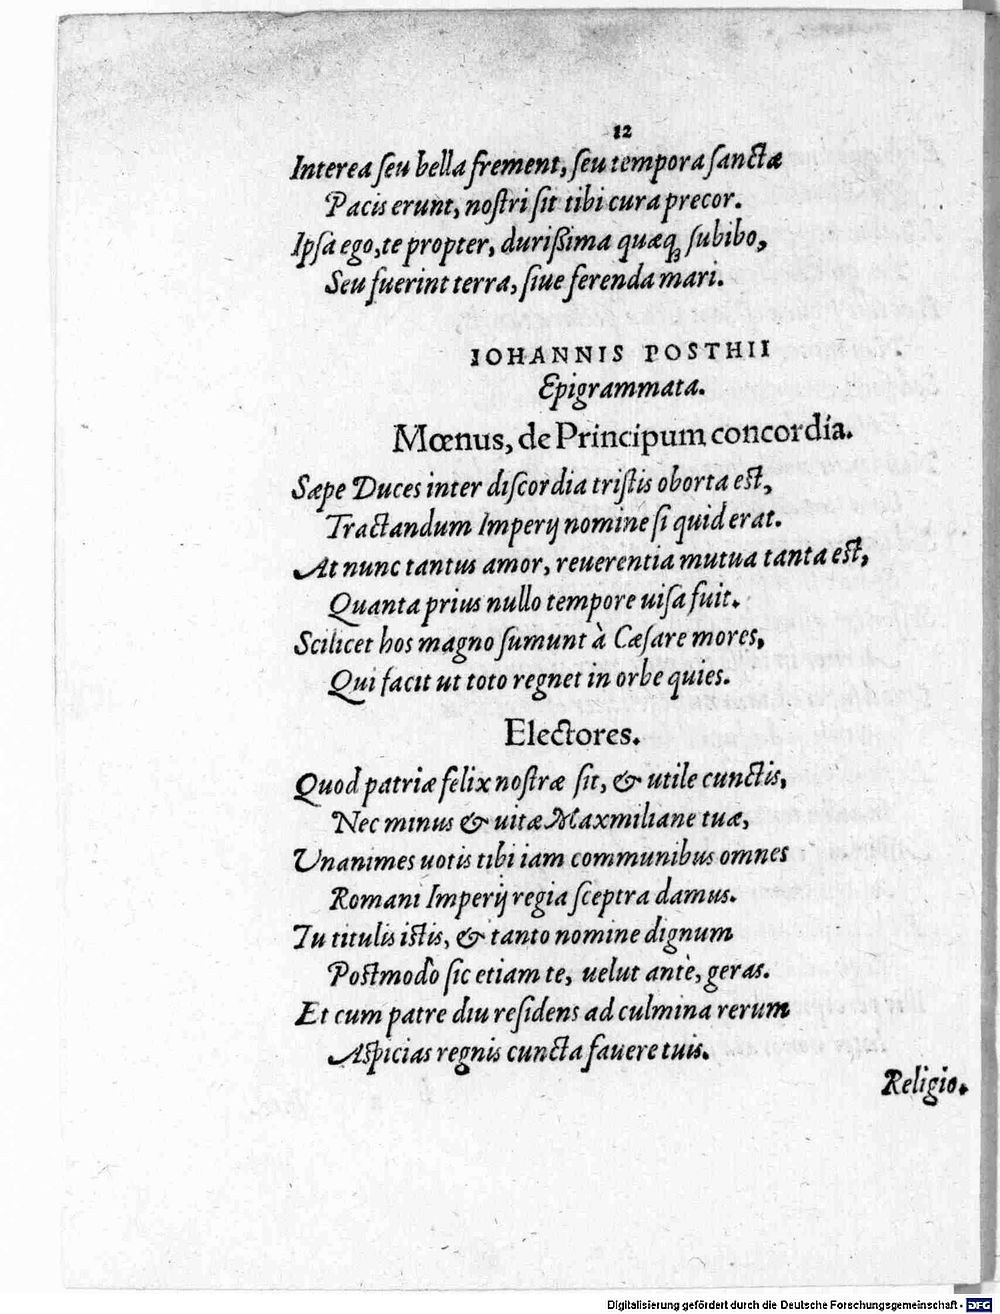 12
Interea ſeu bella frement, ſeu tempora ſanctæ
Pacis erunt, noſtri ſit tibi cura precor.
Ipſa ego, te propter, durißima quæq́; ſubibo,
Seu fuerint terra, ſiue ferenda mari.
IOHANNIS POSTHII
Epigrammata.
Mœnus, de Principum concordia.
Sæpe Duces inter diſcordia triſtis oborta eſt,
Tractandum Imperij nomine ſi quid erat.
At nunc tantus amor, reuerentia mutua tanta eſt,
Quanta prius nullo tempore uiſa fuit.
Scilicet hos magno ſumunt à Cæſare mores,
Qui facit ut toto regnet in orbe quies.
Electores.
Quod patriæ felix noſtræ ſit, & utile cunctis,
Nec minus & uitæ Maxmiliane tuæ,
Unanimes uotis tibi iam communibus omnes
Romani Imperij regia ſceptra damus.
Tu titulis iſtis, & tanto nomine dignum
Poſtmodò ſic etiam te, uelut antè, geras.
Et cum patre diu reſidens ad culmina rerum
Aſpicias regnis cuncta fauere tuis.
Religio.
Digitalisierung gefördert durch die Deutsche Forschungsgemeinschaft - DFG